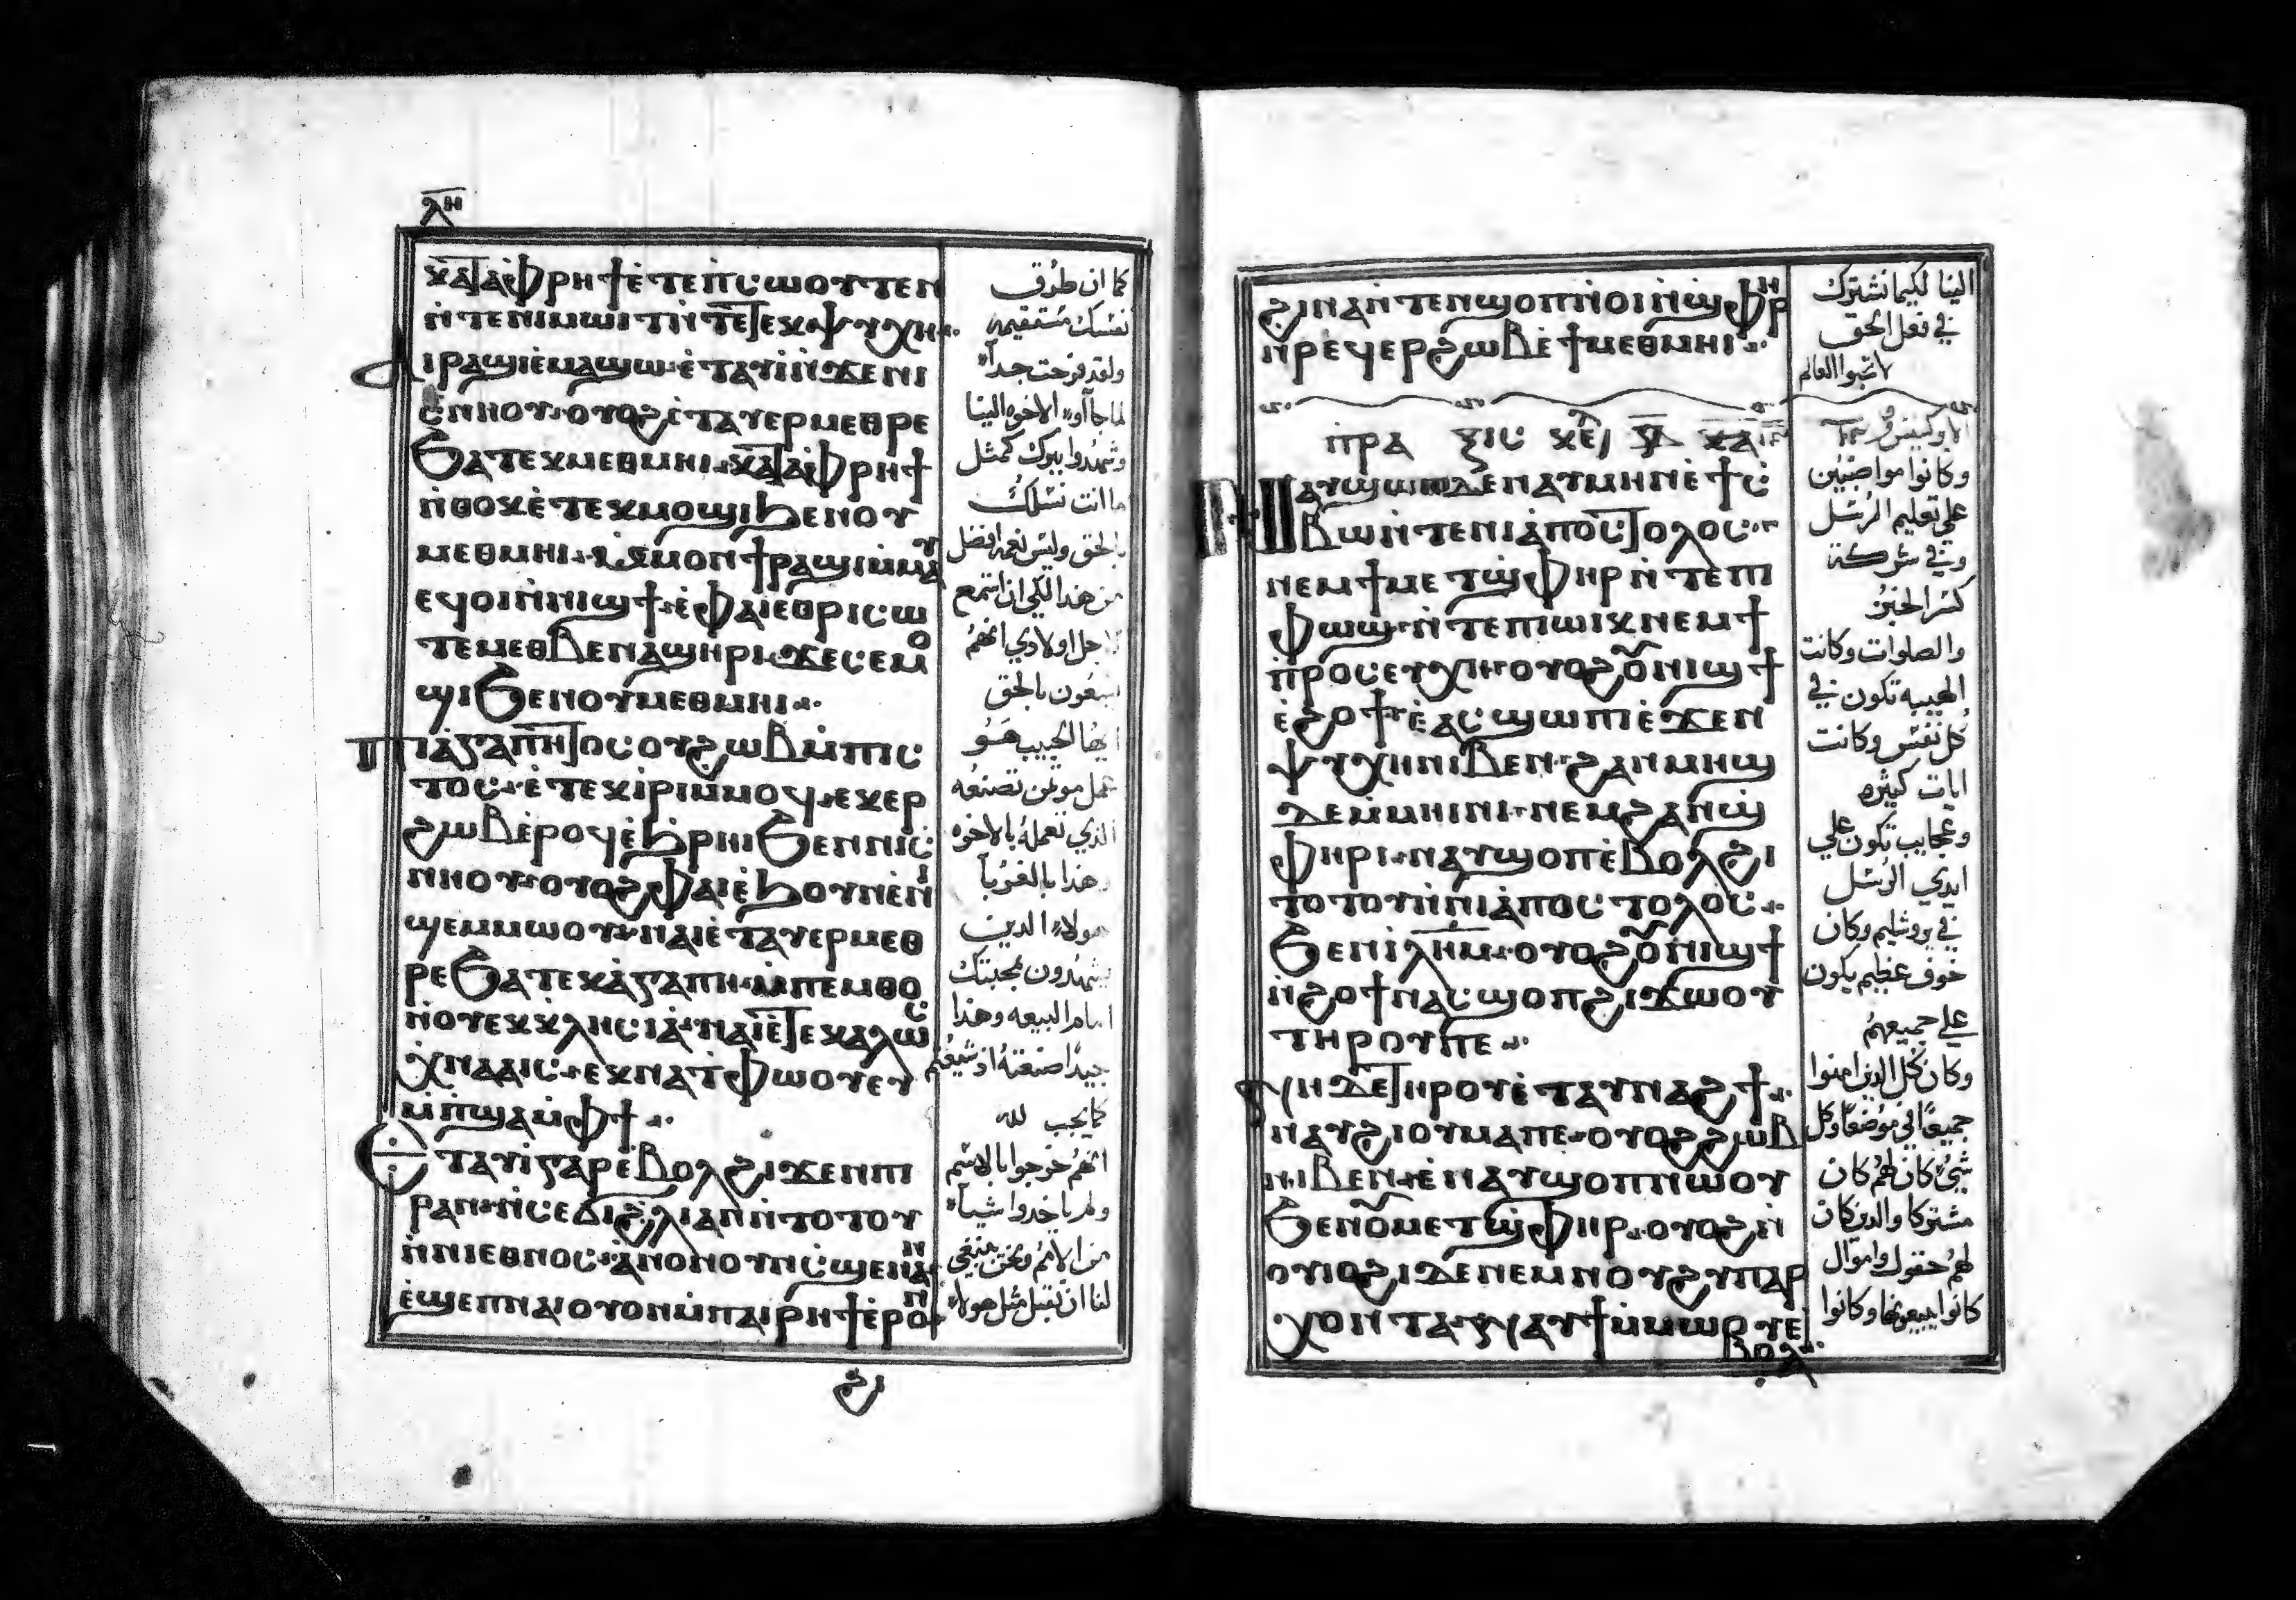 ⲗⲏ
ⲕⲁⲧⲁ ⲫⲣⲏϯ ⲉⲧⲉ ⲡⲥⲱⲟⲩⲧⲉⲛ
ⲛⲧⲉ ⲛⲓⲙⲱⲓⲧ ⲛⲧⲉ ⲧⲉⲕⲯⲩⲭⲏ
ⲁⲓⲣⲁϣⲓ ⲉⲙⲁϣⲱ ⲉⲧⲁⲩⲓ ⲛϫⲉ ⲛⲓ
ⲥⲛⲏⲟⲩ ⲟⲩⲟϩ ⲉⲧⲁⲩⲉⲣⲙⲉⲑⲣⲉ
ϧⲁ ⲧⲉⲕⲙⲉⲑⲙⲏⲓ ⲕⲁⲧⲁ ⲫⲣⲏϯ
ⲛⲑⲟⲕ ⲉⲧⲉⲕⲙⲟϣⲓ ϧⲉⲛ ⲟⲩ
ⲙⲉⲑⲙⲏⲓ ⲙⲙⲟⲛ ϯⲣⲁϣⲓ ⲙⲙⲁⲩ
ⲉϥⲟⲓ ⲛⲛⲓϣϯ ⲉⲫⲁⲓ ⲉⲑⲣⲓⲥⲱ
ⲧⲉⲙ ⲉⲑⲃⲉ ⲛⲁϣⲏⲣⲓ ϫⲉ ⲥⲉⲙⲟ
ϣⲓ ϧⲉⲛ ⲟⲩⲙⲉⲑⲙⲏⲓ
ⲡⲓⲁⲅⲁⲡⲏⲧⲟⲥ ⲟⲩϩⲱⲃ ⲙⲡⲓⲥ
ⲧⲟⲥ ⲉⲧⲉⲕⲓⲣⲓ ⲙⲙⲟϥ ⲉⲕⲉⲣ
ϩⲱⲃ ⲉⲣⲟϥ ⲉϧⲣⲏⲓ ϧⲉⲛ ⲛⲓⲥ
ⲛⲏⲟⲩ ⲟⲩⲟϩ ⲫⲁⲓ ⲉϧⲟⲩⲛ ⲉⲛⲓ
ϣⲉⲙⲙⲱⲟⲩ ⲛⲁⲓ ⲉⲧⲁⲩⲉⲣⲙⲉⲑ
ⲣⲉ ϧⲁ ⲧⲉⲕⲁⲅⲁⲡⲏ ⲙⲡⲉⲙⲑⲟ
ⲛⲟⲩⲉⲕⲕⲗⲏⲥⲓⲁ ⲛⲁⲓ ⲉⲧⲉⲕⲁⲗⲱⲥ
ⲭⲛⲁⲁⲓⲥ ⲉⲕⲛⲁⲧⲫⲱⲟⲩ ⲉⲩ
ⲙⲡϣⲁ ⲙⲫϯ
ⲉⲧⲁⲩⲓ ⲅⲁⲣ ⲉⲃⲟⲗ ϩⲓϫⲉⲛ ⲡⲓ
ⲣⲁⲛ ⲛⲥⲉϭⲓ ϩⲗⲓ ⲁⲛ ⲛⲧⲟⲧⲟⲩ
ⲛⲛⲓⲉⲑⲛⲟⲥ ⲁⲛⲟⲛ ⲟⲩⲛ ⲥϣⲉ ⲛⲁⲛ
ⲉϣⲉⲡ ⲛⲁⲓ ⲟⲩⲟⲛ ⲙⲡⲁⲓⲣⲏϯ ⲉⲣⲟⲛ
ϩⲓ
كما ان طرق
نفسك مستقيمه
ولقد فرحت جداً
لما جااو الاخوه الينا
وشهدوا ببرك كمثل
ما انت تسلك
بالحق وليس نعمه افضل
من هذا لكي ان استمع
لاجل اولادي انهم
يسعون بالحق
ايها الحبيب هو
عمل مومن تصنعه
الذي تعمله بالاخوه
وهذا بالغربا
هولاء الدين
يشهدون بمحبتك
امام البيعه وهذا
جيدًا صنعته اذ شيعتهم
كما يجب لله
انهم خرجوا بالاسم
ولم ياخدوا شياً
من الامم ونحن ينبغي
لنا ان نقبل مثل هولاء
ϩⲓⲛⲁ ⲛⲧⲉⲛϣⲟⲡⲓ ⲛⲟⲓ ⲛϣⲫⲏⲣ
ⲛⲣⲉϥⲉⲣϩⲱⲃ ⲉϯⲙⲉⲑⲙⲏⲓ
ⲡⲣⲁ
ⲛⲁⲩϣⲱⲡ ⲇⲉ ⲛⲁⲩⲙⲏⲛ ⲉϯⲥ
ⲃⲱ ⲛⲧⲉ ⲛⲓⲁⲡⲟⲥⲧⲟⲗⲟⲥ
ⲛⲉⲙ ϯⲙⲉⲧϣⲫⲏⲣ ⲛⲧⲉ ⲡⲓ
ⲫⲱϣ ⲛⲧⲉ ⲡⲓⲱⲓⲕ ⲛⲉⲙ ϯ
ⲡⲣⲟⲥⲉⲩⲭⲏ ⲟⲩⲟϩ ⲟⲛⲓϣϯ
ⲉϩⲟϯ ⲉⲁⲥϣⲱⲡⲓ ⲉϫⲉⲛ
ⲯⲩⲭⲏ ⲛⲓⲃⲉⲛ ϩⲁⲛⲙⲏϣ
ⲇⲉ ⲙⲙⲏⲓⲛⲓ ⲛⲉⲙ ϩⲁⲛϣ
ⲫⲏⲣⲓ ⲛⲁⲩϣⲟⲡ ⲉⲃⲟⲗ ϩⲓ
ⲧⲟⲧⲟⲩ ⲛⲛⲓⲁⲡⲟⲥⲧⲟⲗⲟⲥ
ϧⲉⲛ ⲓⲗⲏⲙ ⲟⲩⲟϩ ⲟⲛⲓϣϯ
ⲛϩⲟϯ ⲛⲁⲥϣⲟⲡ ϩⲓϫⲱⲟⲩ
ⲧⲏⲣⲟⲩ ⲡⲉ
ⲛⲏ ⲇⲉ ⲧⲏⲣⲟⲩ ⲉⲧⲁⲩⲛⲁϩϯ
ⲛⲁⲩϩⲓⲟⲩⲙⲁ ⲡⲉ ⲟⲩⲟϩ ϩⲱⲃ
ⲛⲓⲃⲉⲛ ⲉⲛⲁⲩϣⲟⲡ ⲛⲱⲟⲩ
ϧⲉⲛ ⲟⲙⲉⲧϣⲫⲏⲣ ⲟⲩⲟϩ ⲛ
ⲟⲩⲓⲟϩⲓ ⲇⲉ ⲛⲉⲙ ⲛⲟⲩϩⲩⲡⲁⲣ
ⲭⲟⲛⲧⲁ ⲛⲁⲩϯ ⲙⲙⲱⲟⲩ ⲉ
ⲃⲟⲗ
الينا لكيما نشترك
في فعل الحق
لا تحبوا العالم
وكانوا مواضبين
علي تعليم الرسل
وفي شركة
كسر الخبز
والصلوات وكانت
الهيبه تكون في
كل نفس وكانت
ايات كثيره
وعجايب تكون علي
ايدي الرسل
في يروشليم وكان
خوف عظيم يكون
علي جميعهم
وكان كل الدين امنوا
جميعًا في موضعًا وكل
شيٌ كان لهم كان
مشتركا والدين كان
لهم حقول واموال
كانوا يبيعونها وكانوا